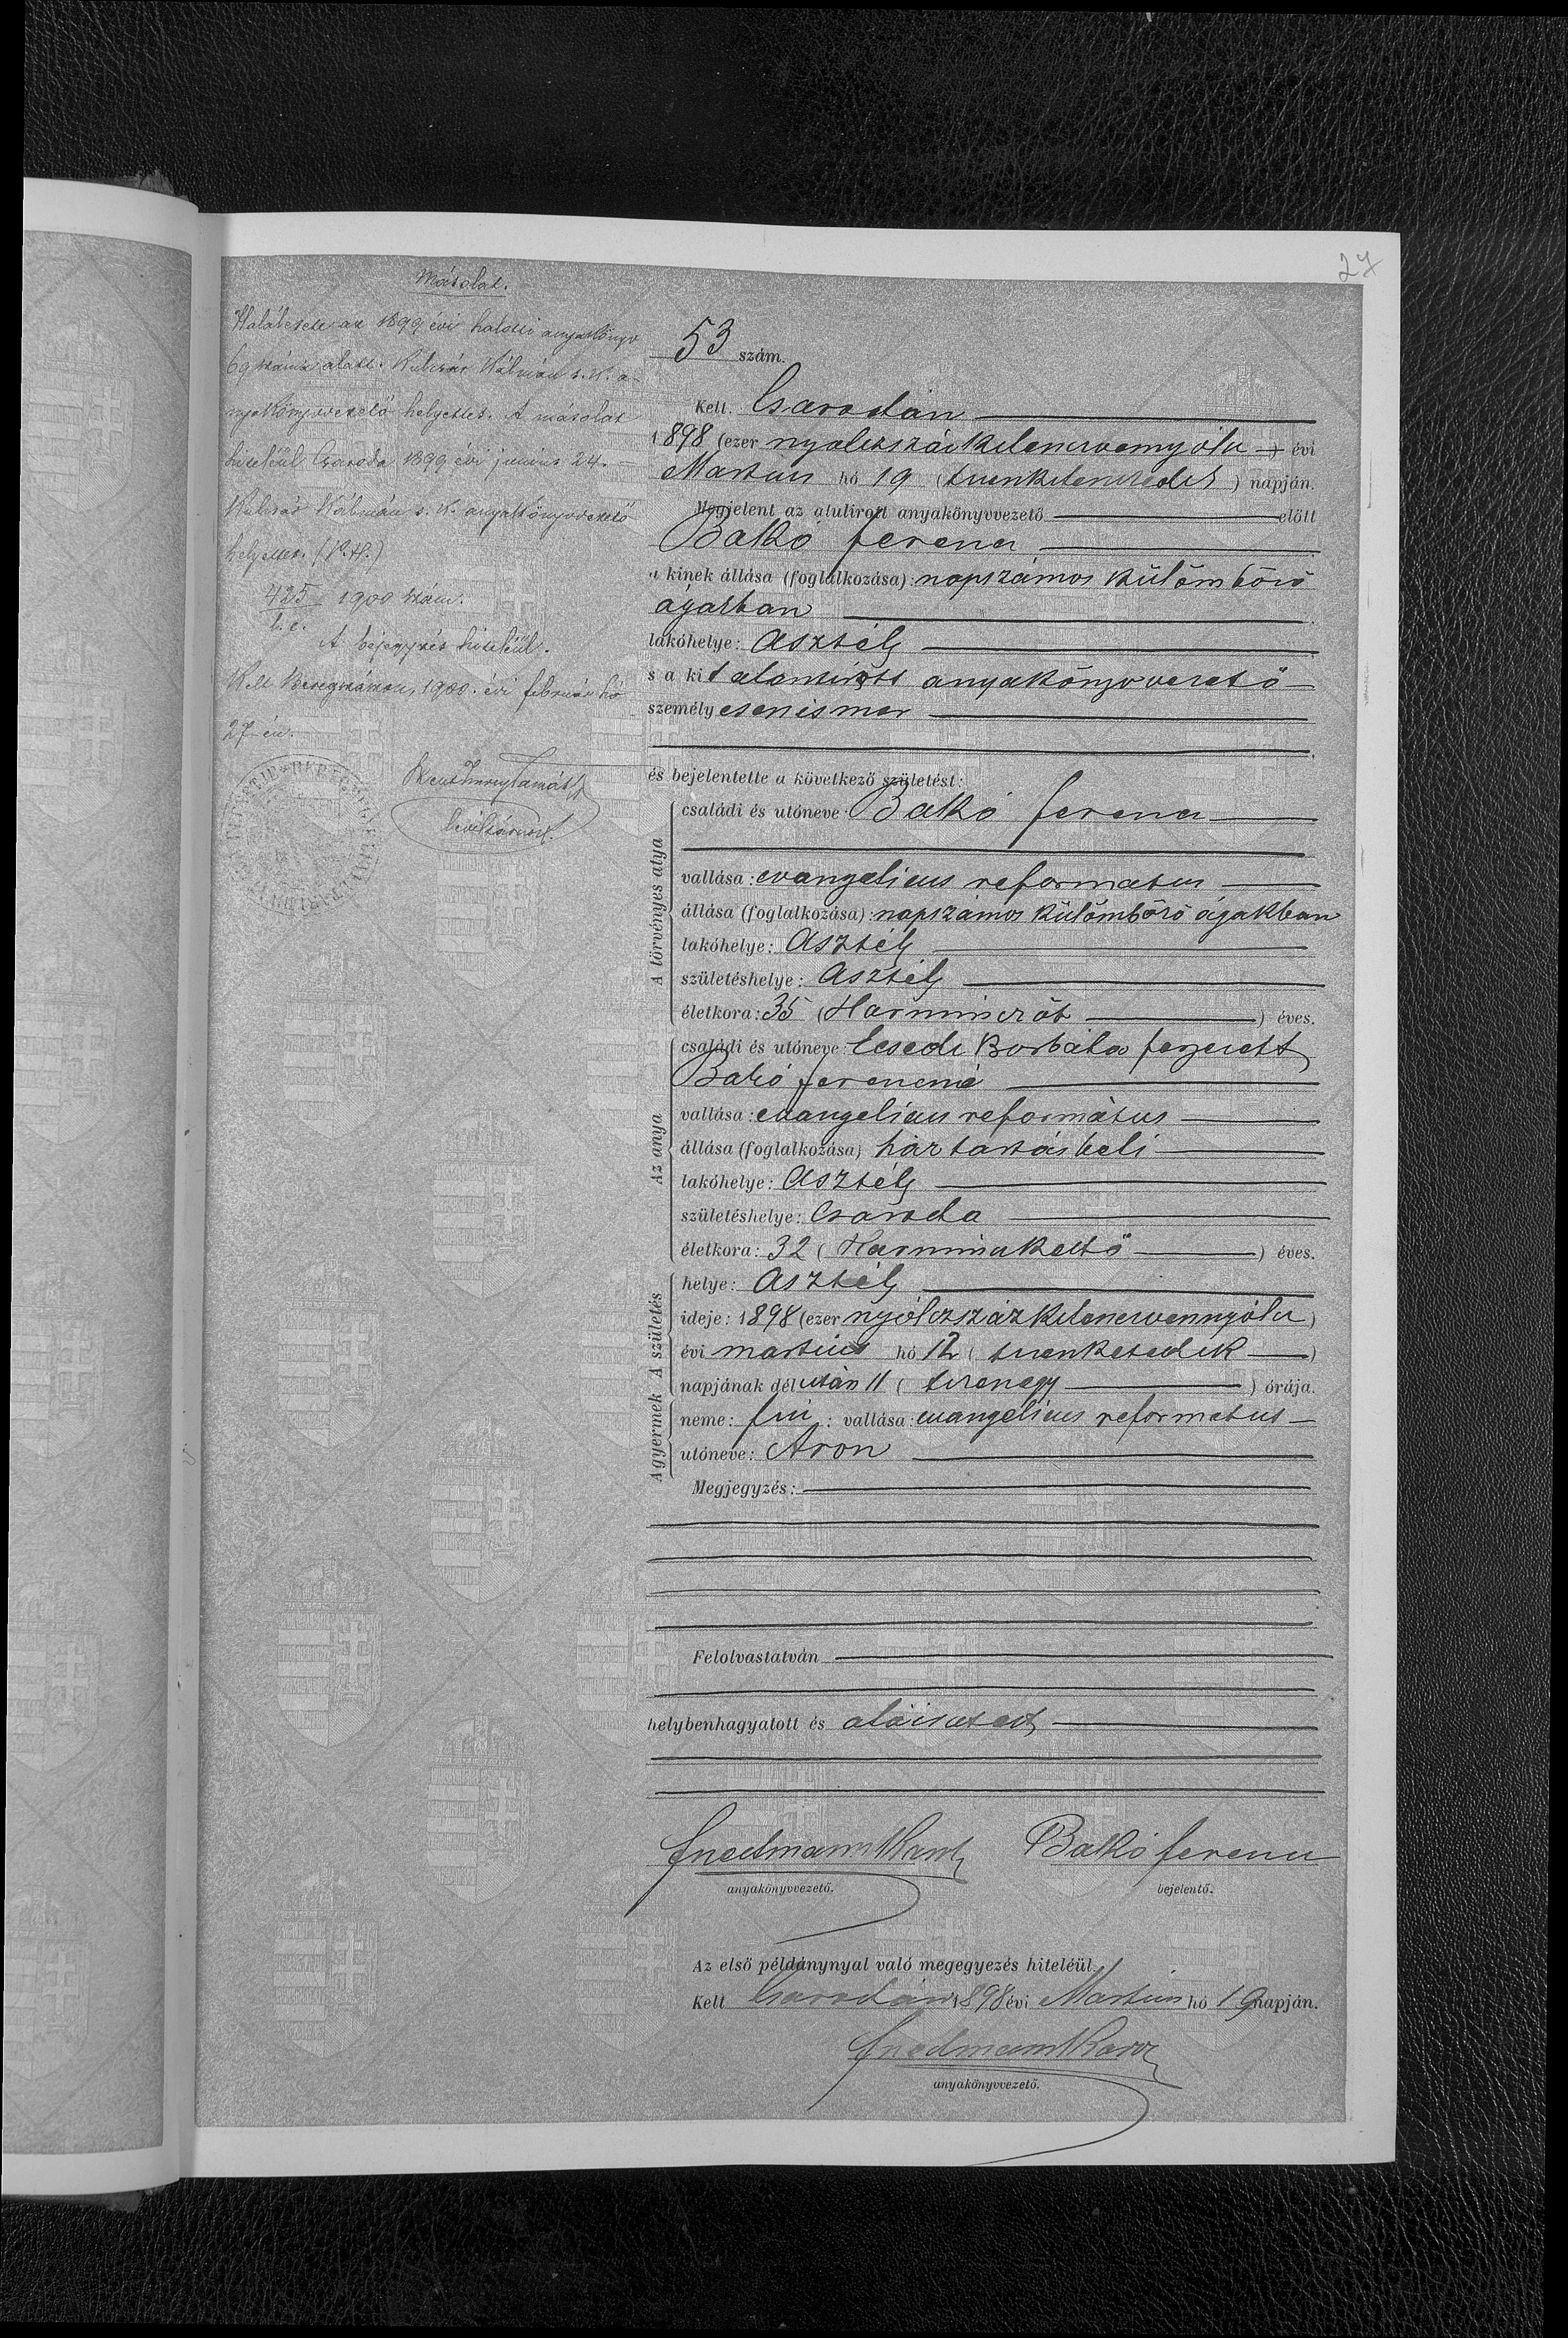 27
Másolat.
Halálesete az 1899 évi halotti anyakönyv
69 száma alatt. Kulcsár Kálmán s. k. a-
nyakönyvvezető helyettes. A másolat
hiteléül Csaroda 1899 évi junius 24. —
Kulcsár Kálmán s. k. anyakönyvvezető
helyettes. (P. H.)
425 1900 szám.
A bejegyzés hiteléül.
Kelt Beregszászon, 1900. évi február hó
27-én.
levéltárnok.
53 szám.
Kelt. Csarodán
1898 (ezer nyolczszáz kilenczvennyolcz) évi
Martius hó 19 (tizenkilenczedik) napján.
Megjelent az alulirott anyakönyvvezető előtt
Balkó Ferencz
a kinek állása (foglalkozása): napszámos külömböző
ágakban
lakóhelye: Asztély
s a kit alantirott anyakönyvvezető
személyesen ismer
és bejelentette a következő születést:
A törvényes atya
családi és utóneve: Balkó Ferencz
vallása: evangelicus reformatus
állása (foglalkozása): napszámos külömböző ágakban
lakóhelye: Asztély
születéshelye: Asztély
életkora: 35 (Harminczöt) éves.
Az anya
családi és utóneve: Ecsedi Borbála férjezett
Balkó Ferenczné
vallása: evangelicus református
állása (foglalkozása) háztartásbeli
lakóhelye: Asztély
születéshelye: Csaroda
életkora: 32 (Harminczkettő) éves.
A születés
helye: Asztély
ideje: 1898 (ezer nyólczszáz kilenczvennyólcz)
évi martius hó 12 (tizenkettedik)
napjának délután 11 (tizenegy) órája.
A gyermek
neme: fiú: vallása: evangelicus reformatus
utóneve: Aron
Megjegyzés:
Felolvastatván
helybenhagyatott és aláiratott
Friedmann Karoly Balkó Ferencz
anyakönyvvezető. bejelentő.
Az első példánynyal való megegyezés hiteléül.
Kelt Csarodán 1898 évi Martius hó 19 napján.
Friedmann Karoly
anyakönyvvezető.